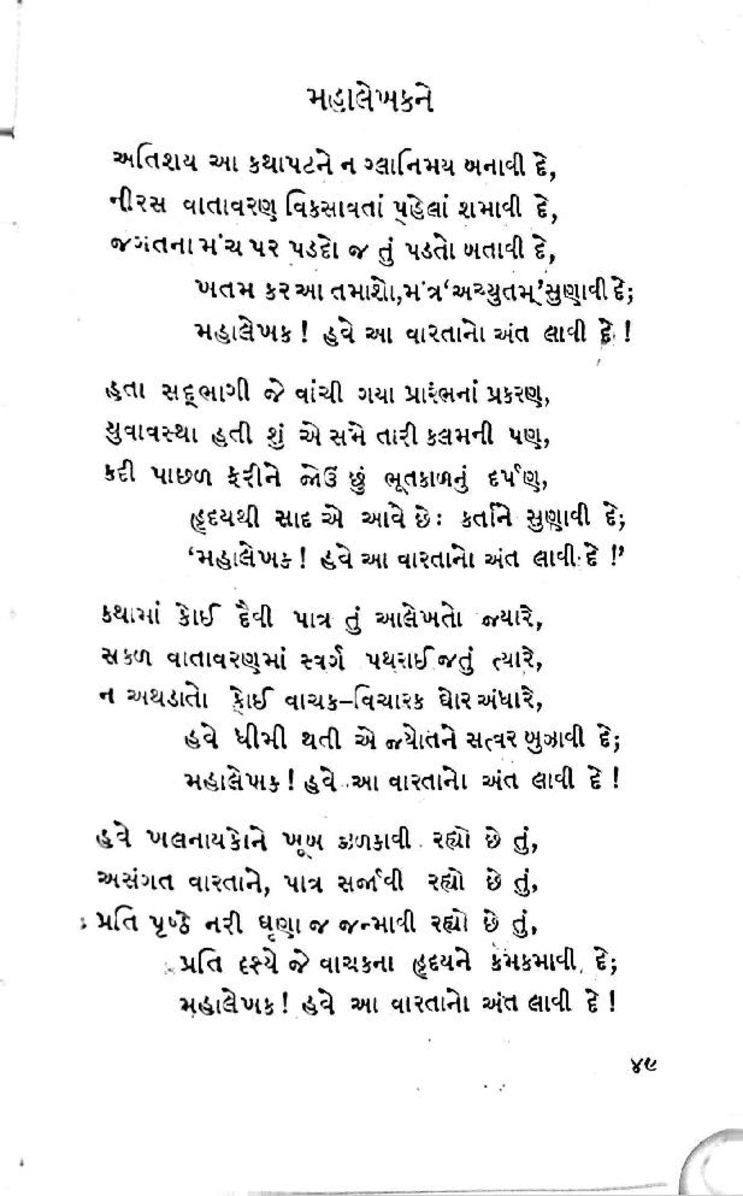 મહાલેખકને
અતિશય આ કથાપટને ન ગ્લાનિમય બનાવી દે,
નીરસ વાતાવરણ વિકસાવતાં પહેલાં શમાવી દે,
જગતના મંચ પર પડદો જ તું પડતો બતાવી દે,
ખતમ કર આ તમાશો, મંત્ર ‘અચ્યુતમ્’ સુણાવી દે;
મહાલેખક ! હવે આ વારતાનો અંત લાવી દે !
હતા સદ્ભાગી જે વાંચી ગયા પ્રારંભનાં પ્રકરણ,
યુવાવસ્થા હતી શું એ સમે તારી કલમની પણ,
કદી પાછળ ફરીને જોઉં છું ભૂતકાળનું દર્પણ,
હૃદયથી સાદ એ આવે છેઃ કર્તાને સુણાવી દે;
‘મહાલેખક ! હવે આ વારતાનો અંત લાવી દે !’
કથામાં કોઈ દૈવી પાત્ર તું આલેખતો જ્યારે,
સકળ વાતાવરણમાં સ્વર્ગ પથરાઈ જતું ત્યારે,
ન અથડાતો કોઈ વાચક–વિચારક ઘોર અંધારે,
હવે ધીમી થતી એ જ્યોતને સત્વર બુઝાવી દે;
મહાલેખક ! હવે આ વારતાનો અંત લાવી દે !
હવે ખલનાયકોને ખૂબ ઝળકાવી રહ્યો છે તું,
અસંગત વારતાને, પાત્ર સર્જાવી રહ્યો છે તું,
પ્રતિ પૃષ્ઠે નરી ઘૃણા જ જન્માવી રહ્યો છે તું,
પ્રતિ દૃશ્યે જે વાચકના હૃદયને કમકમાવી દે;
મહાલેખક ! હવે આ વારતાનો અંત લાવી દે !
૪૯